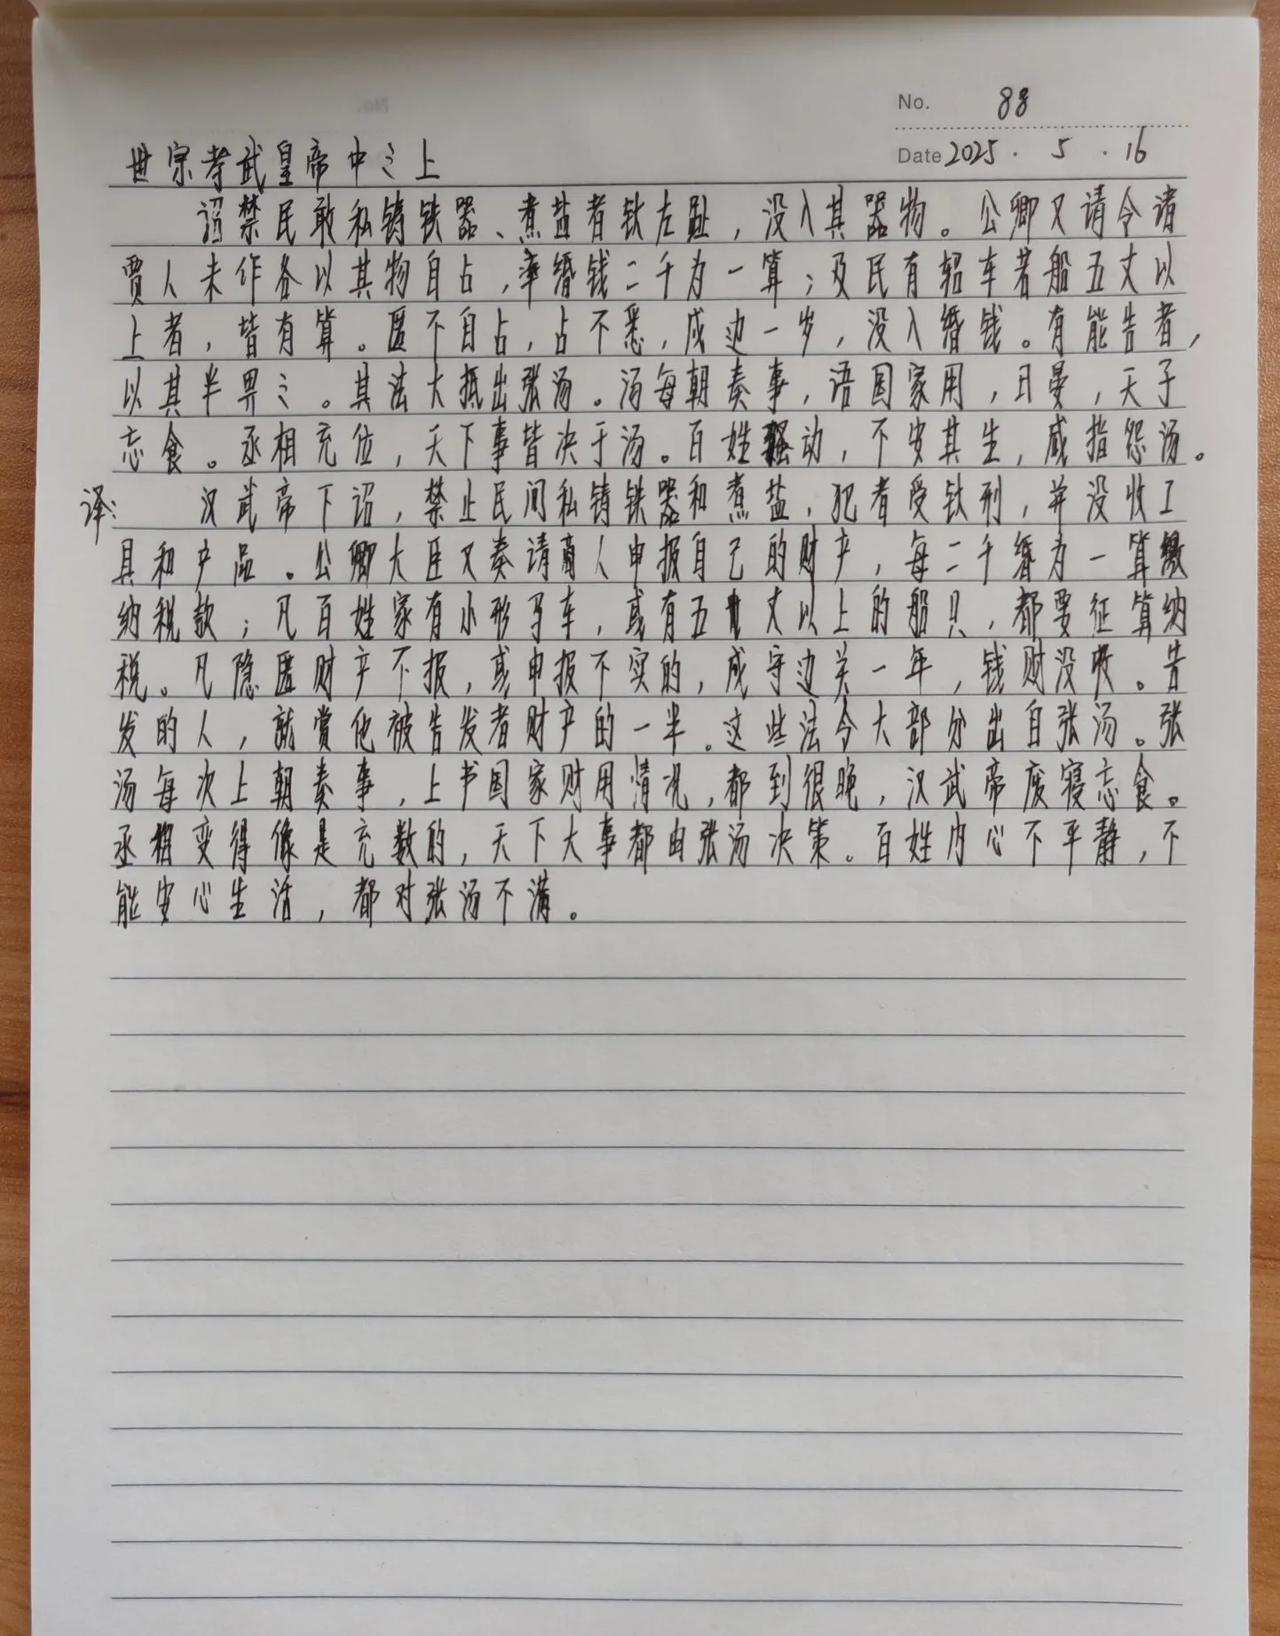 No. 88
Date 2025 . 5 . 16
世宗孝武皇帝中之上
诏禁民敢私铸铁器、煮盐者钛左趾，没入其器物。公卿又请令诸
贾人末作各以其物自占，率缗钱二千为一算；及民有轺车若船五丈以
上者，皆有算。匿不自占，占不悉，戍边一岁，没入缗钱。有能告者，
以其半畀之。其法大抵出张汤。汤每朝奏事，语国家用，日晏，天子
忘食。丞相充位，天下事皆决于汤。百姓骚动，不安其生，咸指怨汤。
译：汉武帝下诏，禁止民间私铸铁器和煮盐，犯者受钛刑，并没收工
具和产品。公卿大臣又奏请商人申报自己的财产，每二千缗为一算缴
纳税款；凡百姓家有小形马车，或有五丈以上的船只，都要征算纳
税。凡隐匿财产不报，或申报不实的，戍守边关一年，钱财没收。告
发的人，就赏他被告发者财产的一半。这些法令大部分出自张汤。张
汤每次上朝奏事，上书国家财用情况，都到很晚，汉武帝废寝忘食。
丞相变得像是充数的，天下大事都由张汤决策。百姓内心不平静，不
能安心生活，都对张汤不满。